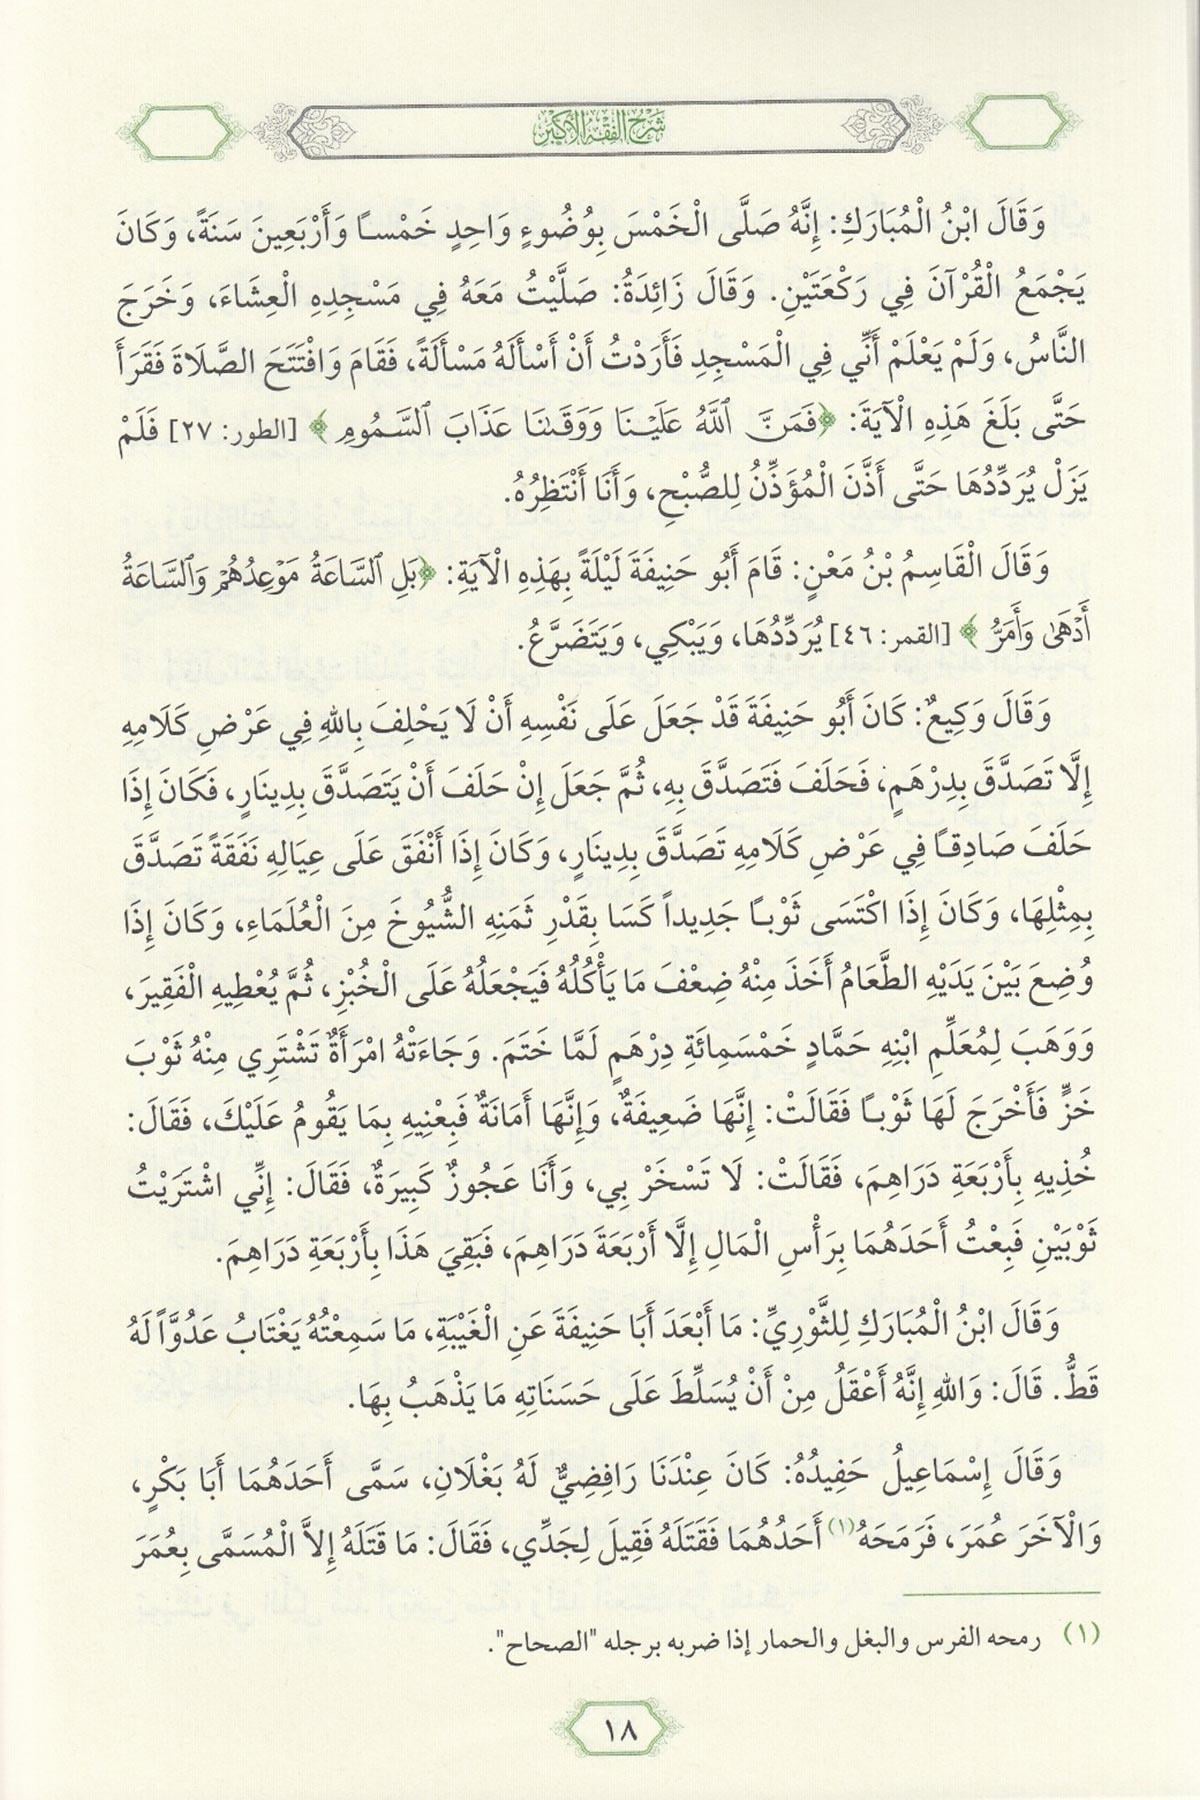 شرح الفقه الأكبر
وَقَالَ ابْنُ الْمُبَارَكِ: إِنَّهُ صَلَّى الْخَمْسَ بِوُضُوءٍ وَاحِدٍ خَمْساً وَأَرْبَعِينَ سَنَةً، وَكَانَ
يَجْمَعُ الْقُرْآنَ فِي رَكْعَتَيْنِ. وَقَالَ زَائِدَةُ: صَلَّيْتُ مَعَهُ فِي مَسْجِدِهِ الْعِشَاءَ، وَخَرَجَ
النَّاسُ، وَلَمْ يَعْلَمْ أَنِّي فِي الْمَسْجِدِ فَأَرَدْتُ أَنْ أَسْأَلَهُ مَسْأَلَةً، فَقَامَ وَافْتَتَحَ الصَّلَاةَ فَقَرَأَ
حَتَّى بَلَغَ هَذِهِ الْآيَةَ: ﴿فَمَنَّ ٱللَّهُ عَلَيْنَا وَوَقَىٰنَا عَذَابَ ٱلسَّمُومِ﴾ [الطور: ٢٧] فَلَمْ
يَزَلْ يُرَدِّدُهَا حَتَّى أَذَّنَ الْمُؤَذِّنُ لِلصُّبْحِ، وَأَنَا أَنْتَظِرُهُ.
وَقَالَ الْقَاسِمُ بْنُ مَعْنٍ: قَامَ أَبُو حَنِيفَةَ لَيْلَةً بِهَذِهِ الْآيَةِ: ﴿بَلِ ٱلسَّاعَةُ مَوْعِدُهُمْ وَٱلسَّاعَةُ
أَدْهَىٰ وَأَمَرُّ﴾ [القمر: ٤٦] يُرَدِّدُهَا، وَيَبْكِي، وَيَتَضَرَّعُ.
وَقَالَ وَكِيعٌ: كَانَ أَبُو حَنِيفَةَ قَدْ جَعَلَ عَلَى نَفْسِهِ أَنْ لَا يَحْلِفَ بِاللهِ فِي عَرْضِ كَلَامِهِ
إِلَّا تَصَدَّقَ بِدِرْهَمٍ، فَحَلَفَ فَتَصَدَّقَ بِهِ، ثُمَّ جَعَلَ إِنْ حَلَفَ أَنْ يَتَصَدَّقَ بِدِينَارٍ، فَكَانَ إِذَا
حَلَفَ صَادِقاً فِي عَرْضِ كَلَامِهِ تَصَدَّقَ بِدِينَارٍ، وَكَانَ إِذَا أَنْفَقَ عَلَى عِيَالِهِ نَفَقَةً تَصَدَّقَ
بِمِثْلِهَا، وَكَانَ إِذَا اكْتَسَى ثَوْباً جَدِيداً كَسَا بِقَدْرِ ثَمَنِهِ الشُّيُوخَ مِنَ الْعُلَمَاءِ، وَكَانَ إِذَا
وُضِعَ بَيْنَ يَدَيْهِ الطَّعَامُ أَخَذَ مِنْهُ ضِعْفَ مَا يَأْكُلُهُ فَيَجْعَلُهُ عَلَى الْخُبْزِ، ثُمَّ يُعْطِيهِ الْفَقِيرَ،
وَوَهَبَ لِمُعَلِّمِ ابْنِهِ حَمَّادٍ خَمْسَمِائَةِ دِرْهَمٍ لَمَّا خَتَمَ. وَجَاءَتْهُ امْرَأَةٌ تَشْتَرِي مِنْهُ ثَوْبَ
خَزٍّ فَأَخْرَجَ لَهَا ثَوْباً فَقَالَتْ: إِنَّهَا ضَعِيفَةٌ، وَإِنَّهَا أَمَانَةٌ فَبِعْنِيهِ بِمَا يَقُومُ عَلَيْكَ، فَقَالَ:
خُذِيهِ بِأَرْبَعَةِ دَرَاهِمَ، فَقَالَتْ: لَا تَسْخَرْ بِي، وَأَنَا عَجُوزٌ كَبِيرَةٌ، فَقَالَ: إِنِّي اشْتَرَيْتُ
ثَوْبَيْنِ فَبِعْتُ أَحَدَهُمَا بِرَأْسِ الْمَالِ إِلَّا أَرْبَعَةَ دَرَاهِمَ، فَبَقِيَ هَذَا بِأَرْبَعَةِ دَرَاهِمَ.
وَقَالَ ابْنُ الْمُبَارَكِ لِلثَّوْرِيِّ: مَا أَبْعَدَ أَبَا حَنِيفَةَ عَنِ الْغَيْبَةِ، مَا سَمِعْتُهُ يَغْتَابُ عَدُوّاً لَهُ
قَطُّ. قَالَ: وَاللهِ إِنَّهُ أَعْقَلُ مِنْ أَنْ يُسَلِّطَ عَلَى حَسَنَاتِهِ مَا يَذْهَبُ بِهَا.
وَقَالَ إِسْمَاعِيلُ حَفِيدُهُ: كَانَ عِنْدَنَا رَافِضِيٌّ لَهُ بَغْلَانِ، سَمَّى أَحَدَهُمَا أَبَا بَكْرٍ،
وَالْآخَرَ عُمَرَ، فَرَمَحَهُ(١) أَحَدُهُمَا فَقَتَلَهُ فَقِيلَ لِجَدِّي، فَقَالَ: مَا قَتَلَهُ إِلاَّ الْمُسَمَّى بِعُمَرَ
(١) رمحه الفرس والبغل والحمار إذا ضربه برجله "الصحاح".
١٨